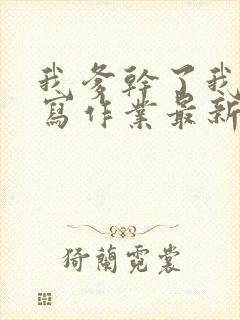 我爹幹了我
寫作業最新
猗蘭霓裳